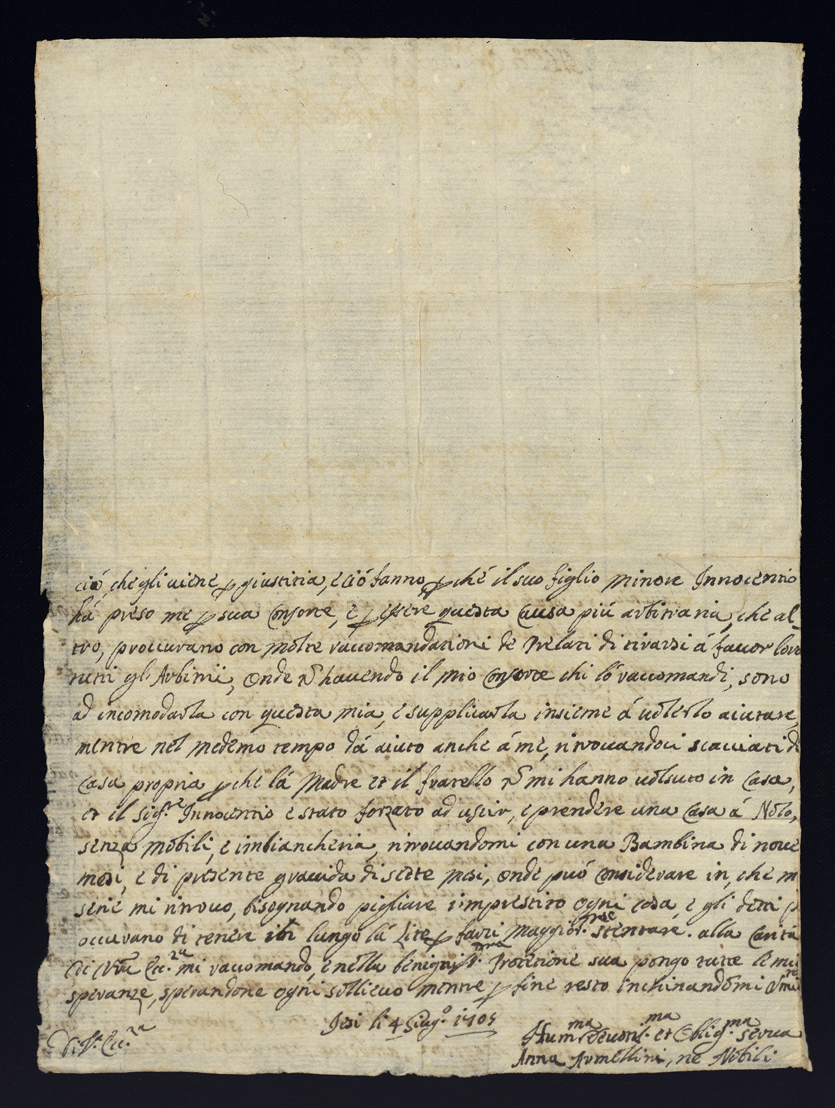 ciò, che gli viene p giustitia, e ciò fanno, p chè il suo figlio minore Innocentio
hà preso me p sua Consorte, e p essere questa Causa più arbitraria, che al-
tro, proccurano con molte raccomandationi de Prelati di tirarsi à favor loro
tutti gl'Arbitrij, Onde ñ havendo il mio Consorte chi lo raccomandi, sono
ad incomodarla con questa mia, e supplicarla insieme à volerlo aiutare,
mentre nel medemo tempo dà aiuto anche à me, ritrovandoci scacciati di
Casa propria p che la Madre et il fratello ñ mi hanno volsuto in Casa,
et il Sigr.e Innocentio è stato forzato ad uscir, e prendere una Casa à Nolo,
senza mobili, e imbiancheria, ritrovandomi con una Bambina di nove
mesi, e di presente gravida di sette mesi, Onde può considerare in, che m
serie mi ritrovo, bisognando pigliare imprestito ogni cosa, e gli detti p
occurano di tenere lungo la Lite p farci maggior.te stentare. alla Carità
di Vra Ecc.za mi raccomando, e nella benig.ma Protetione sua pongo tutte le mie
speranze, sperandone ogni sollievo mentre p fine resto inchinandomi
Di V. Ecc.za
Jesi li 4 Giug.o 1705
Hum.ma Devotis.ma et Oblig.ma serva
Anna Armellini, ne Nobili